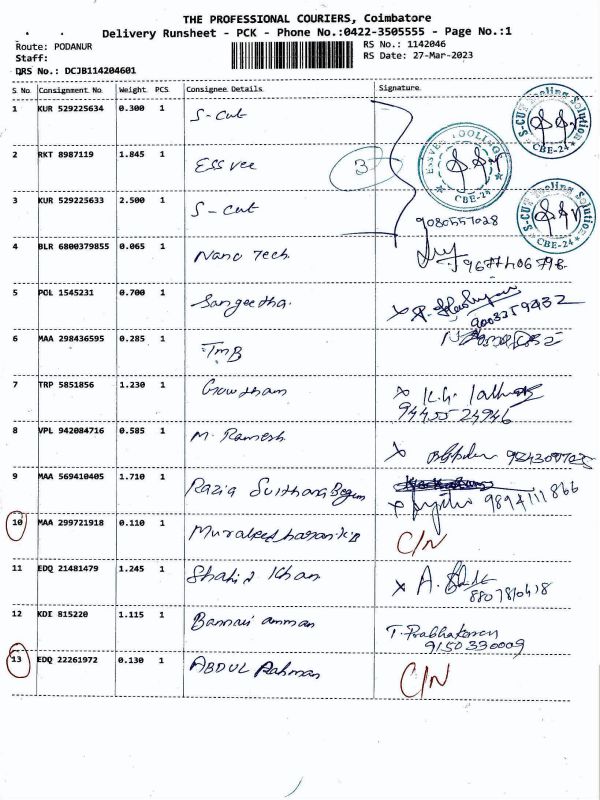 THE PROFESSIONAL COURIERS, Coimbatore
Delivery Runsheet - PCK - Phone No.:0422-3505555 - Page No.:1
Route: PODANUR
RS No.: 1142046
Staff:
RS Date: 27-Mar-2023
DRS No.: DCJB114204601
S No. Consignment No Weight PCS Consignee Details Signature
1 KUR 529225634 0.300 1 S-Cut
S-CUT Tooling Solution CBE-24
2 RKT 8987119 1.845 1 ESSvee 3
ESSVEE TOOLING CBE-24
3 KUR 529225633 2.500 1 S-Cut
S-CUT Tooling Solution CBE-24
9080557028
4 BLR 6800379855 0.065 1 Nano Tech.
5 POL 1545231 0.700 1 Sangeetha.
9003259432
6 MAA 298436595 0.285 1 TMB
7 TRP 5851856 1.230 1 Gowtham
94455 24946
8 VPL 942084716 0.585 1 M. Ramesh
9 MAA 569410405 1.710 1 Razia Sulthana Begum
9894111866
10 MAA 299721918 0.110 1 C/N
11 EDQ 21481479 1.245 1 Shahid Khan
8807810418
12 KDI 815220 1.115 1 Bannari amman
T. Prabhakaran
9150330009
13 EDQ 22261972 0.130 1 ABDUL Rahman C/N